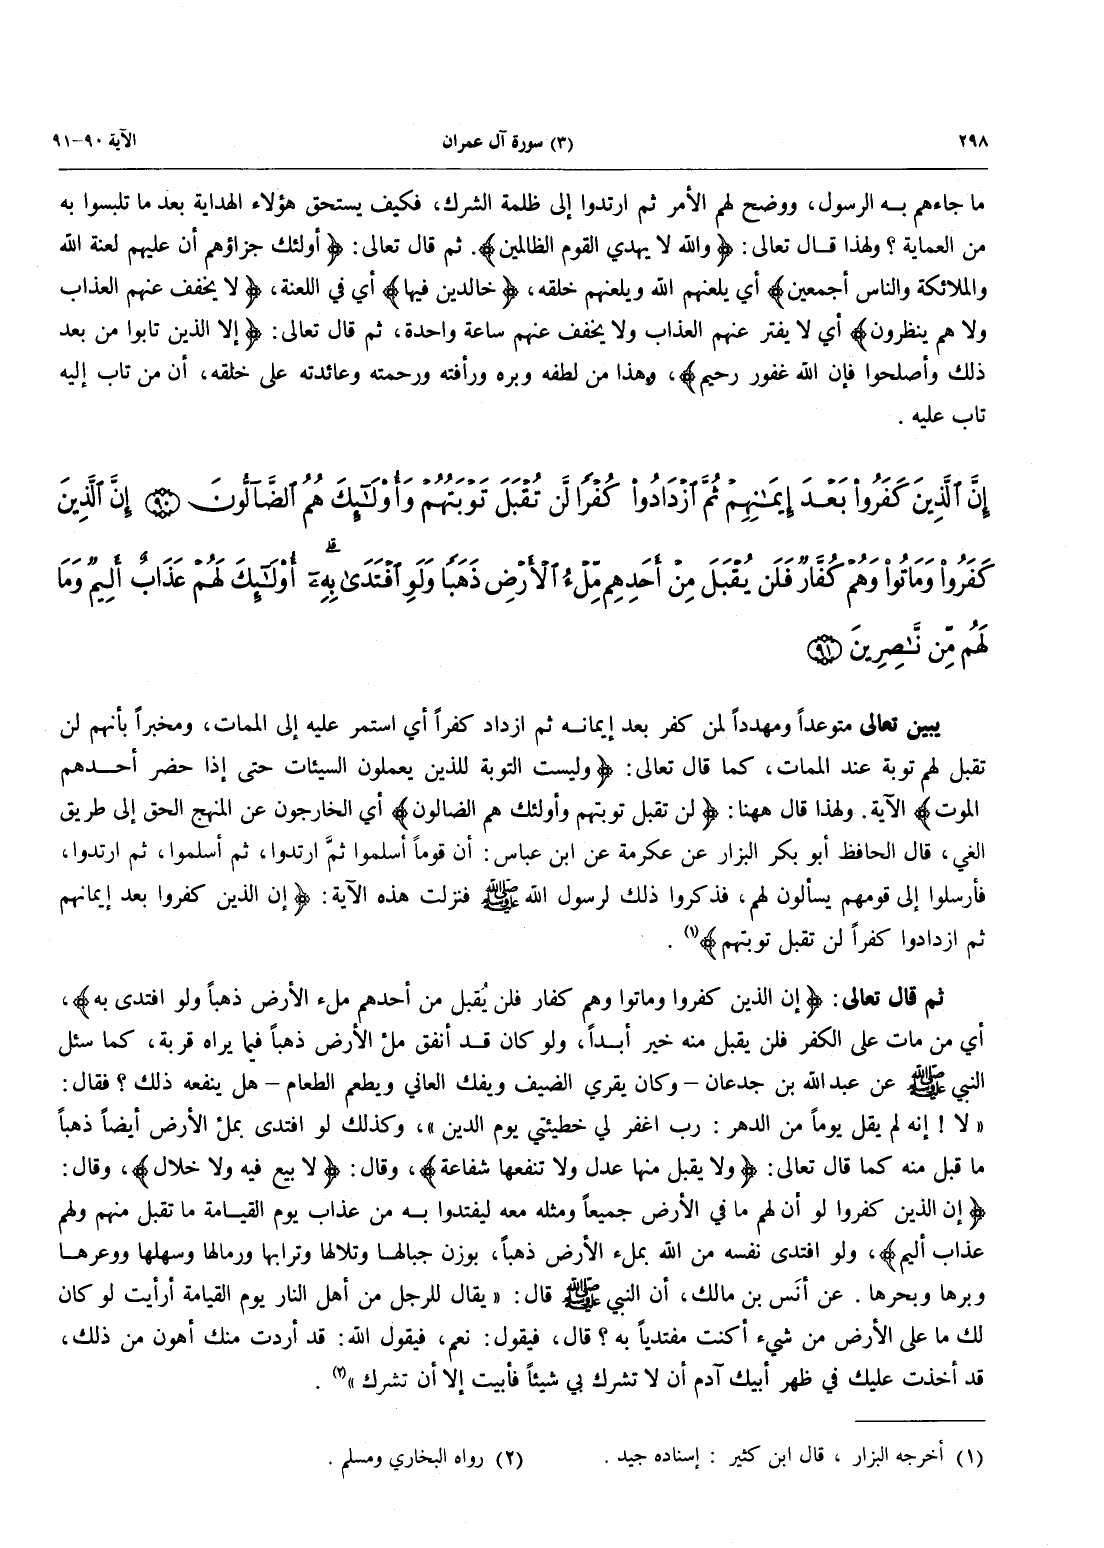 ٢٩٨ (٣) سورة آل عمران الآية ٩٠-٩١
ما جاءهم بـه الرسول، ووضح لهم الأمر ثم ارتدوا إلى ظلمة الشرك، فكيف يستحق هؤلاء الهداية بعد ما تلبسوا به
من العماية ؟ ولهذا قـال تعالى: ﴿ والله لا يهدي القوم الظالمين﴾. ثم قال تعالى: ﴿ أولئك جزاؤهم أن عليهم لعنة الله
والملائكة والناس أجمعين﴾ أي يلعنهم الله ويلعنهم خلقه، ﴿ خالدين فيها﴾ أي في اللعنة، ﴿ لا يخفف عنهم العذاب
ولا هم ينظرون﴾ أي لا يفتر عنهم العذاب ولا يخفف عنهم ساعة واحدة، ثم قال تعالى: ﴿ إلا الذين تابوا من بعد
ذلك وأصلحوا فإن الله غفور رحيم﴾، وهذا من لطفه وبره ورأفته ورحمته وعائدته على خلقه، أن من تاب إليه
تاب عليه .
إِنَّ ٱلَّذِينَ كَفَرُوا۟ بَعْدَ إِيمَـٰنِهِمْ ثُمَّ ٱزْدَادُوا۟ كُفْرًا لَّن تُقْبَلَ تَوْبَتُهُمْ وَأُو۟لَـٰٓئِكَ هُمُ ٱلضَّآلُّونَ ﴿٩٠﴾ إِنَّ ٱلَّذِينَ
كَفَرُوا۟ وَمَاتُوا۟ وَهُمْ كُفَّارٌ فَلَن يُقْبَلَ مِنْ أَحَدِهِم مِّلْءُ ٱلْأَرْضِ ذَهَبًا وَلَوِ ٱفْتَدَىٰ بِهِۦٓ ۗ أُو۟لَـٰٓئِكَ لَهُمْ عَذَابٌ أَلِيمٌ وَمَا
لَهُم مِّن نَّـٰصِرِينَ ﴿٩١﴾
يبين تعالى متوعداً ومهدداً لمن كفر بعد إيمانـه ثم ازداد كفراً أي استمر عليه إلى الممات، ومخبراً بأنهم لن
تقبل لهم توبة عند الممات، كما قال تعالى: ﴿ وليست التوبة للذين يعملون السيئات حتى إذا حضر أحـدهم
الموت﴾ الآية. ولهذا قال ههنا: ﴿ لن تقبل توبتهم وأولئك هم الضالون﴾ أي الخارجون عن المنهج الحق إلى طريق
الغي، قال الحافظ أبو بكر البزار عن عكرمة عن ابن عباس: أن قوماً أسلموا ثمَّ ارتدوا، ثم أسلموا، ثم ارتدوا،
فأرسلوا إلى قومهم يسألون لهم، فذكروا ذلك لرسول الله ﷺ فنزلت هذه الآية: ﴿ إن الذين كفروا بعد إيمانهم
ثم ازدادوا كفراً لن تقبل توبتهم﴾(١) .
ثم قال تعالى: ﴿ إن الذين كفروا وماتوا وهم كفار فلن يُقبل من أحدهم ملء الأرض ذهباً ولو افتدى به﴾،
أي من مات على الكفر فلن يقبل منه خير أبـداً، ولو كان قـد أنفق ملْ الأرض ذهباً فيما يراه قربة، كما سئل
النبي ﷺ عن عبدالله بن جدعان – وكان يقري الضيف ويفك العاني ويطعم الطعام – هل ينفعه ذلك ؟ فقال:
« لا ! إنه لم يقل يوماً من الدهر : رب اغفر لي خطيئتي يوم الدين »، وكذلك لو افتدى بملْ الأرض أيضاً ذهباً
ما قبل منه كما قال تعالى: ﴿ ولا يقبل منها عدل ولا تنفعها شفاعة﴾، وقال: ﴿ لا بيع فيه ولا خلال﴾، وقال:
﴿ إن الذين كفروا لو أن لهم ما في الأرض جميعاً ومثله معه ليفتدوا بـه من عذاب يوم القيـامة ما تقبل منهم ولهم
عذاب أليم﴾، ولو افتدى نفسه من الله بملء الأرض ذهباً، بوزن جبالهـا وتلالها وترابها ورمالها وسهلها ووعرهـا
وبرها وبحرها . عن أنَس بن مالك، أن النبي ﷺ قال: « يقال للرجل من أهل النار يوم القيامة أرأيت لو كان
لك ما على الأرض من شيء أكنت مفتدياً به ؟ قال، فيقول: نعم، فيقول الله: قد أردت منك أهون من ذلك،
قد أخذت عليك في ظهر أبيك آدم أن لا تشرك بي شيئاً فأبيت إلا أن تشرك »(٢) .
(١) أخرجه البزار ، قال ابن كثير : إسناده جيد . (٢) رواه البخاري ومسلم .